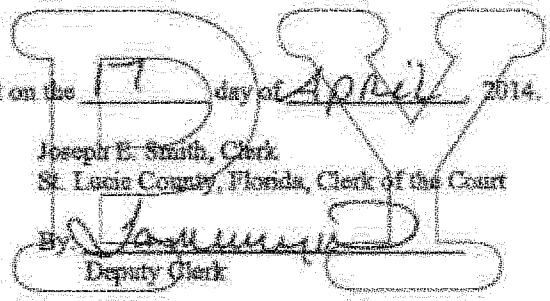 on the 17 day of April 2014.
Joseph E. Smith, Clerk
St. Lucie County, Florida, Clerk of the Court
By
Deputy Clerk